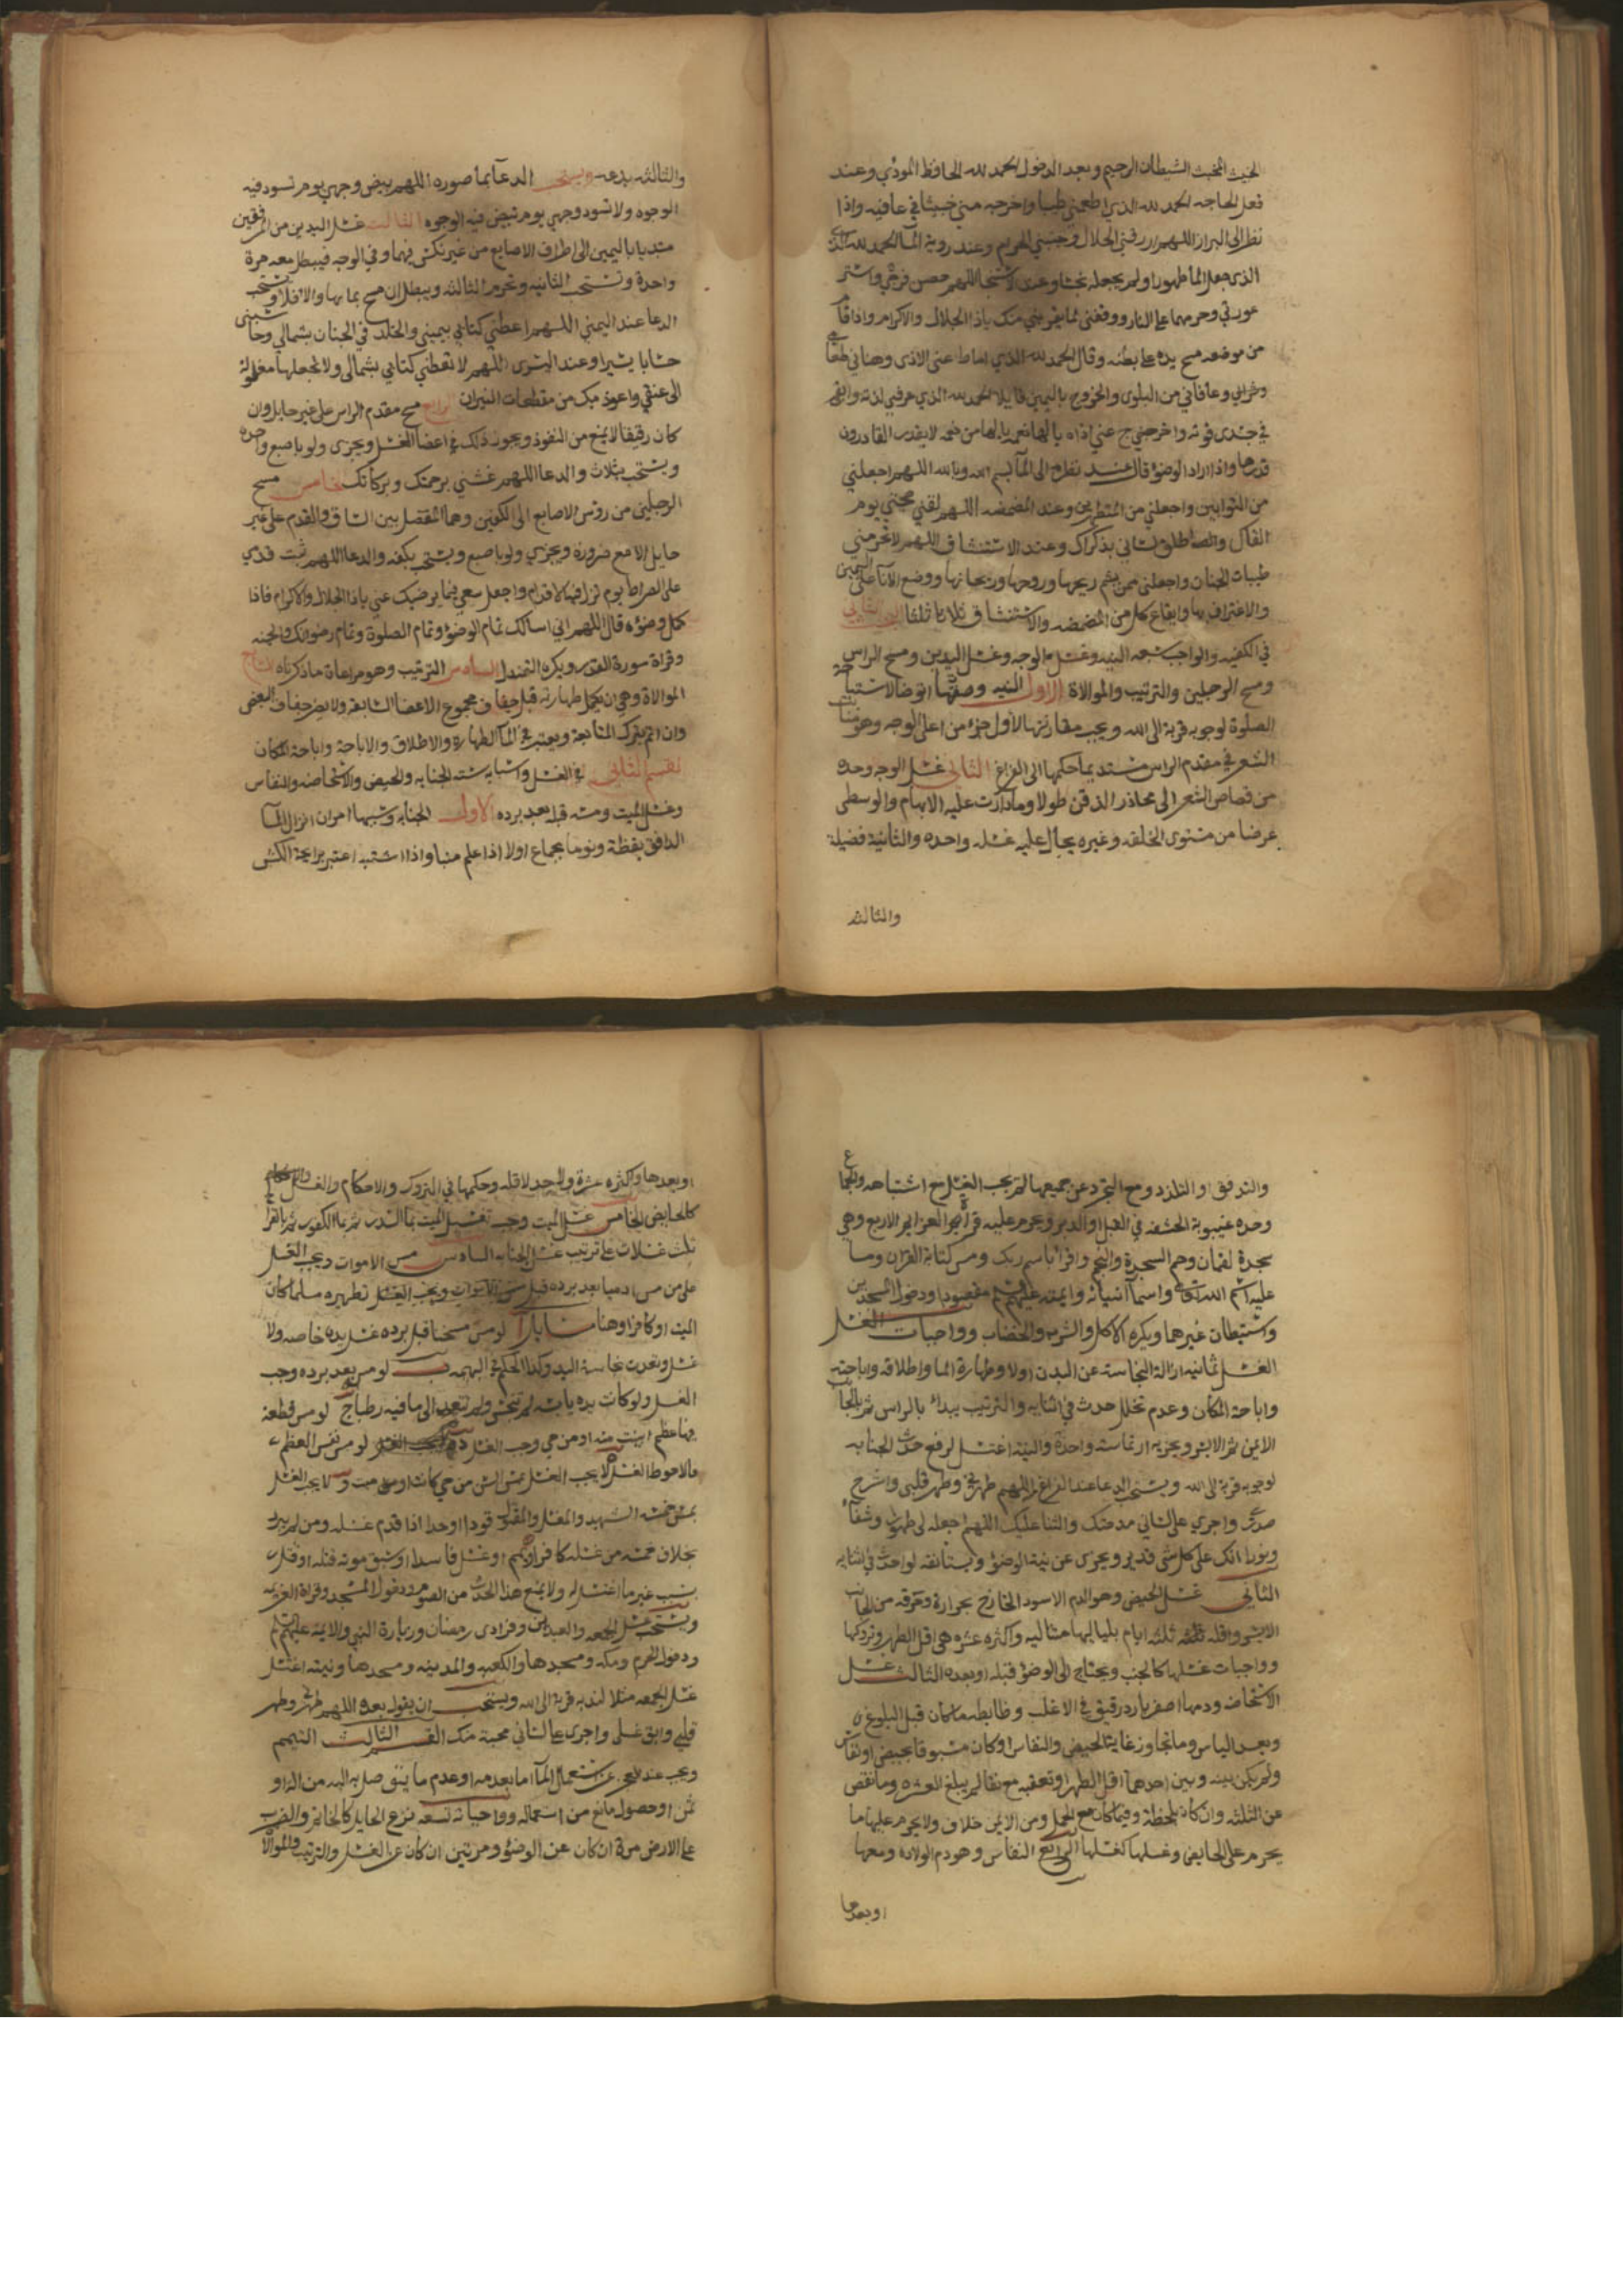 الخبيث المخبث الشيطان الرجيم وبعد الدخول الحمد لله الحافظ المودي وعند
فعل الحاجه الحمد لله الذي اطعمني طيبا واخرجه مني خبيثا في عافيه واذا
نظر الى البراز اللهم ارزقني الحلال وجنبني الحرام وعند روية المآ الحمد لله
الذي جعل المآ طهورا ولم يجعله نجسا وعند الاستنجا اللهم حصن فرجي واستر
عورتي وحرمهما على النار ووفقني لما يقربني منك ياذا الجلال والاكرام واذا قام
من موضعه مسح يده على بطنه وقال الحمد لله الذي اماط عني الاذى وهناني طعامي
وشرابي وعافاني من البلوى والخروج باليمين قايلا الحمد لله الذي عرفني لذته وابقى
في جسدي قوته واخرج عني اذاه يالها نعمه يالها من نعمه لا يقدر القادرون
قدرها واذا اراد الوضؤ قال عند نظره الى المآ بسم الله وبالله اللهم اجعلني
من التوابين واجعلني من المتطهرين وعند المضمضه اللهم لقني حجتي يوم
القاك واطلق لساني بذكراك وعند الاستنشاق اللهم لا تحرمني
طيبات الجنان واجعلني ممن يشم ريحها وروحها وريحانها ووضع الانآ على اليمين
والاغتراف بها وايقاع كل من المضمضه والاستنشاق ثلاثا ثلثا البحث الثاني
في الكيفيه والواجب سبعه النيه وغسل الوجه وغسل اليدين ومسح الراس
ومسح الرجلين والترتيب والموالاة الاول النيه وصفتها اتوضا لاستباحة
الصلوة لوجوبه قربة الى الله ويجب مقارنتها لاول جزء من اعلى الوجه وهو منابت
الشعر في مقدم الراس مستديما حكمها الى الفراغ الثاني غسل الوجه وحده
من قصاص الشعر الى محاذر الذقن طولا وما دارت عليه الابهام والوسطى
عرضا من مستوى الخلقه وغيره يحال عليه غسله واحده والثانية فضيلة
والثالثه
والثالثه بدعه ويستحب الدعآ بما صورته اللهم بيض وجهي يوم تسود فيه
الوجوه ولا تسود وجهي يوم تبيض فيه الوجوه الثالث غسل اليدين من المرفقين
مبتديا باليمين الى اطراف الاصابع من غير نكس فيهما وفي الوجه فيبطل معه مرة
واحدة وتستحب الثانيه وتحرم الثالثه ويبطل ان مسح بمايها والا فلا ويستحب
الدعا عند اليمنى اللهم اعطني كتابي بيميني والخلد في الجنان بشمالي وحاسبني
حسابا يسيرا وعند اليسرى اللهم لا تعطني كتابي بشمالي ولا تجعلها مغلولة
الى عنقي واعوذ بك من مقطعات النيران الرابع مسح مقدم الراس على غير حايل وان
كان رقيقا لا يمنع من النفوذ ويجوز ذلك في اعضآ الغسل ويجزى ولو باصبع واحده
ويستحب بثلاث والدعا اللهم غشني برحمتك وبركاتك الخامس مسح
الرجلين من رؤس الاصابع الى الكعبين وهما المفصل بين الساق والقدم على غير
حايل الا مع ضرورة ويجزي ولو باصبع ويستحب بكفه والدعا اللهم ثبت قدمي
على الصراط يوم تزل فيه الاقدام واجعل سعيي فيما يرضيك عني ياذا الجلال والاكرام فاذا
كمل وضوءه قال اللهم اني اسالك تمام الوضؤ وتمام الصلوة وتمام رضوانك والجنه
وقراة سورة القدر ويكره التمندل السادس الترتيب وهو مراعاة ما ذكرناه السابع
الموالاة وهي ان يكمل طهارته قبل جفاف مجموع الاعضا السابقه ولا يضر جفاف البعض
وان اثم بترك المتابعة ويعتبر في المآ الطهارة والاطلاق والاباحة واباحة المكان
القسم الثاني في الغسل واسبابه سته الجنابه والحيض والاستحاضه والنفاس
وغسل الميت ومسه قبله بعد برده الاول الجنابه وسببها امران انزال المآ
الدافق يقظة ونوما بجماع او لا اذا علم منيا واذا اشتبه اعتبر برايحة الكش
والتدفق او التلذذ ومع التجرد عن جميعها لم يجب الغسل مع اشتباهه والجماع
وحده غيبوبة الحشفه في القبل او الدبر ويحرم عليه قراة العزايم الاربع وهي
سجدة لقمان وحم السجدة والنجم واقرا باسم ربك ومس كتابة القران وما
عليه اسم الله تعالى واسمآ انبيائه وايمته عليهم السلام مقصودا ودخول المسجدين
واستيطان غيرهما ويكره الاكل والشرب والخضاب وواجبات الغسل
الغسل ثمانيه ازالة النجاسة عن البدن اولا وطهارة المآ واطلاقه واباحته
واباحة المكان وعدم تخلل حدث في اثنايه والترتيب يبدأ بالراس ثم بالجانب
الايمن ثم الايسر ويجزيه ارتماسة واحدة والنية اغتسل لرفع حدث الجنابه
لوجوبه قربة الى الله ويستحب الدعا عند الفراغ اللهم طهرني وطهر قلبي واشرح
صدري واجري على لساني مدحتك والثنا عليك اللهم اجعله لي طهورا وشفآء
ونورا انك على كل شى قدير ويجزى عن نية الوضؤ ويستانفه لو احدث في اثنايه
الثاني غسل الحيض وهو الدم الاسود الخارج بحرارة وحرقه من الجانب
الايسر واقله ثلثه ايام بلياليها متتاليه واكثره عشره هي اقل الطهر وتروكها
وواجبات غسلها كالجنب ويحتاج الى الوضؤ قبله او بعده الثالث غسل
الاستحاضه ودمها اصفر بارد رقيق في الاغلب وضابطه ما كان قبل البلوغ
وبعد الياس وما تجاوز غايتا الحيض والنفاس او كان مسبوقا بحيض او نفاس
ولم يكن بينه وبين احدهما اقل الطهر او تعقبه مع نقا لم يبلغ العشره وما نقص
عن الثلثه وان كان بلحظة وفيما كان مع الحمل ومن الايمن خلاف ولا يحرم عليها ما
يحرم على الحايض وغسلها كغسلها الرابع النفاس وهو دم الولاده ومعها
او بعدها
او بعدها واكثره عشرة ولا حد لاقله وحكمها في التروك والاحكام والغسل
كالحايض الخامس غسل الميت وجب تغسيل الميت بمآ السدر ثم بمآ الكافور ثم بالقراح
ثلث غسلات على ترتيب غسل الجنابه السادس مس الاموات ويجب الغسل
على من مس ادميا بعد برده قبل تطهيره مسلما كان
الميت او كافرا وهنا مسايل ا لو مس مسخنا قبل برده غسل يده خاصه ولا
غسل وتعدت نجاسة اليد وكذا الحكم في البهيمه ب لو مس بعد برده وجب
الغسل ولو كانت يده يابسه لم تنجس ولم تتعد الى ما فيه رطبا ج لو مس قطعة
فيها عظم ابينت منه او من حي وجب الغسل د لو مس نفس العظم
فالاحوط الغسل ه لا يجب الغسل بمس السن من حي كانت او من ميت و لا يجب الغسل
بمس خمسه الشهيد والمغسل والمقتول قودا او حدا اذا قدم غسله ومن لم يبرد
بخلاف خمسه من غسله كافر او يمم او غسل فاسدا او سبق موته قتله او قتل
بسبب غير ما اغتسل له ولا يمنع هذا الحدث من الصوم ودخول المسجد وقراة العزيمه
ويستحب غسل الجمعه والعيدين وفرادى رمضان وزيارة النبي والايمة عليهم السلام
ودخول الحرم ومكه ومسجدها والكعبه والمدينه ومسجدها ونيته اغتسل
غسل الجمعه مثلا لندبه قربة الى الله ويستحب ان يقول بعده اللهم طهرني وطهر
قلبي وانق غسلي واجري على لساني محبة منك القسم الثالث التيمم
ويجب عند العجز عن استعمال المآ اما بعدمه او عدم ما يتوصل به اليه من الة او
ثمن او حصول مانع من استعماله وواجباته تسعه نزع الحايل كالخاتم والضرب
على الارض مرة ان كان عن الوضؤ ومرتين ان كان عن الغسل والترتيب والموالاة